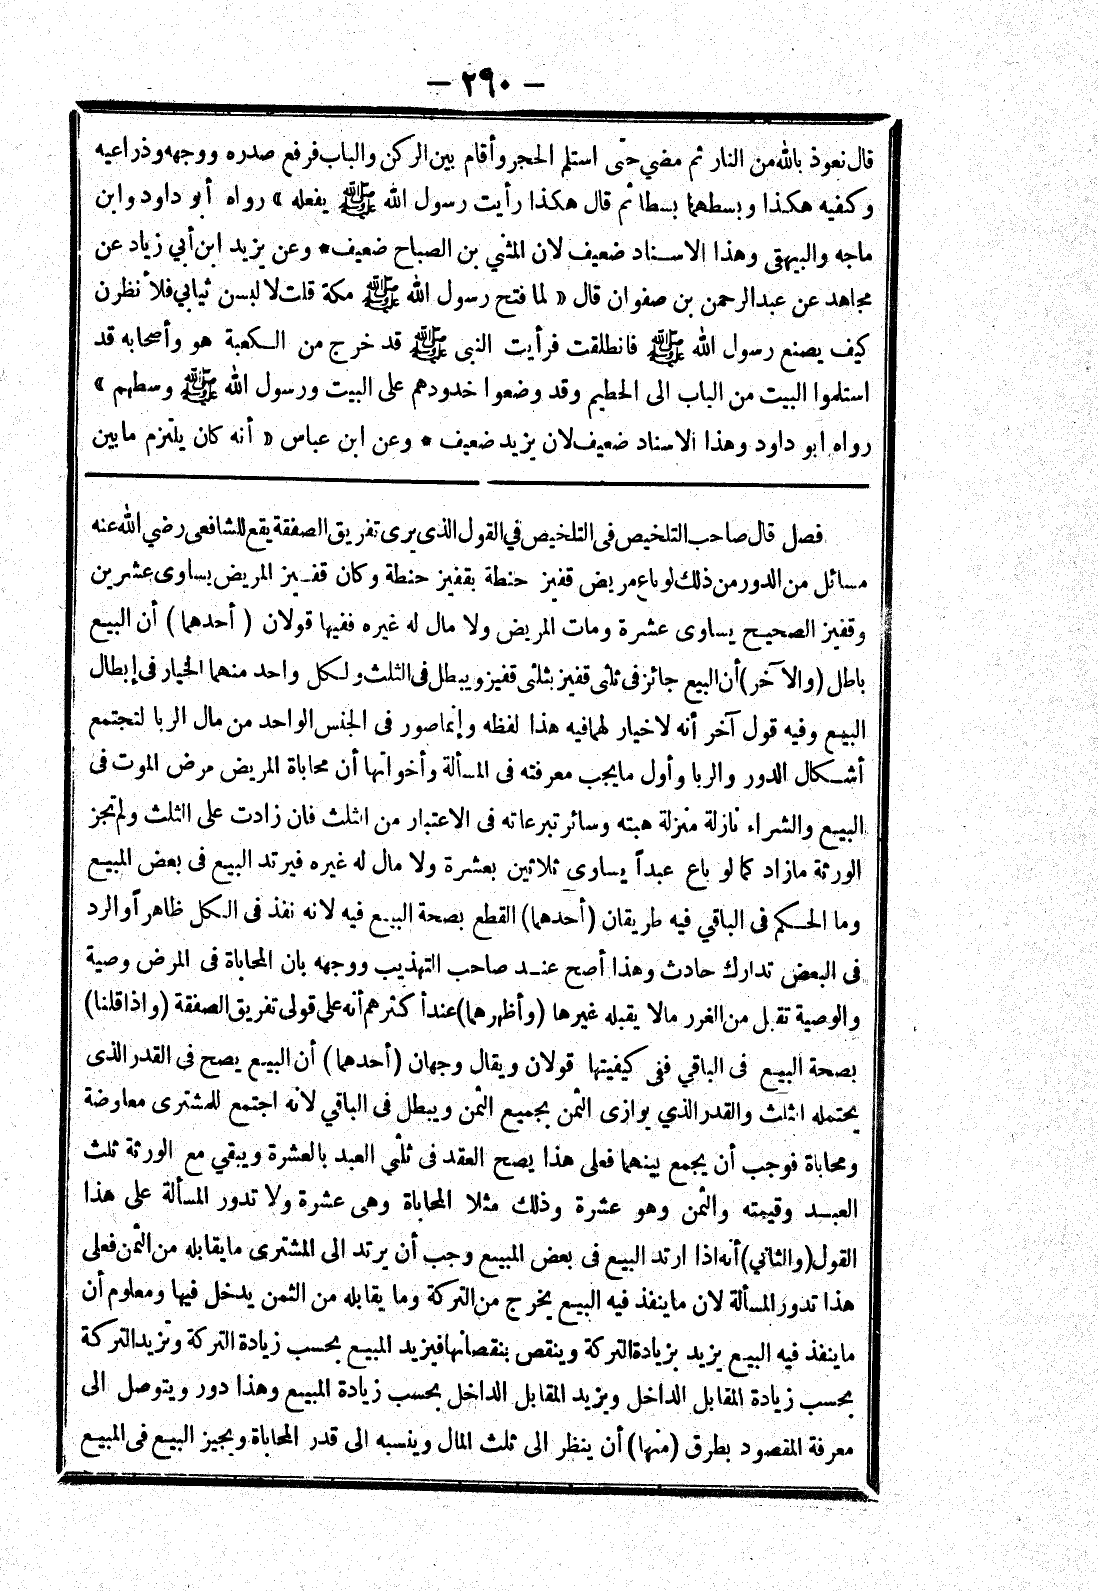 — ٢٩٠ —
قال نعوذ بالله من النار ثم مضي حتى استلم الحجر وأقام بين الركن والباب فرفع صدره ووجهه وذراعيه
وكفيه هكذا وبسطهما بسطا ثم قال هكذا رأيت رسول الله ﷺ يفعله » رواه أبو داود وابن
ماجه والبيهقى وهذا الاسناد ضعيف لان المثني بن الصباح ضعيف * وعن يزيد ابن أبي زياد عن
مجاهد عن عبدالرحمن بن صفوان قال « لما فتح رسول الله ﷺ مكة قلت لالبسن ثيابي فلأ نظرن
كيف يصنع رسول الله ﷺ فانطلقت فرأيت النبى ﷺ قد خرج من الكعبة هو وأصحابه قد
استلموا البيت من الباب الى الحطيم وقد وضعوا خدودهم على البيت ورسول الله ﷺ وسطهم »
رواه ابو داود وهذا الاسناد ضعيف لان يزيد ضعيف * وعن ابن عباس « أنه كان يلتزم مابين
فصل قال صاحب التلخيص فى التلخيص في القول الذى يرى تفريق الصفقة يقع للشافعى رضي الله عنه
مسائل من الدور من ذلك لو باع مريض قفيز حنطة بقفيز حنطة وكان قفيز المريض يساوى عشرين
وقفيز الصحيح يساوى عشرة ومات المريض ولا مال له غيره ففيها قولان ( أحدهما ) أن البيع
باطل (والآخر) أن البيع جائز فى ثلثى قفيز بثلثى قفيز ويبطل فى الثلث ولكل واحد منهما الخيار فى إبطال
البيع وفيه قول آخر أنه لاخيار لهما فيه هذا لفظه وإنما صور فى الجنس الواحد من مال الربا لتجتمع
أشكال الدور والربا وأول مايجب معرفته فى المسألة وأخواتها أن محاباة المريض مرض الموت فى
البيع والشراء نازلة منزلة هبته وسائر تبرعاته فى الاعتبار من الثلث فان زادت على الثلث ولم تجز
الورثة مازاد كما لو باع عبداً يساوى ثلاثين بعشرة ولا مال له غيره فيرتد البيع فى بعض المبيع
وما الحكم فى الباقي فيه طريقان (أحدهما) القطع بصحة البيع فيه لانه نفذ فى الكل ظاهراً والرد
فى البعض تدارك حادث وهذا أصح عند صاحب التهذيب ووجهه بان المحاباة فى المرض وصية
والوصية تقبل من الغرر مالا يقبله غيرها (وأظهرهما) عند أكثرهم أنه على قولى تفريق الصفقة (واذا قلنا)
بصحة البيع فى الباقي ففى كيفيتها قولان ويقال وجهان (أحدهما) أن البيع يصح فى القدر الذى
يحتمله الثلث والقدر الذي يوازى الثمن بجميع الثمن ويبطل فى الباقي لانه اجتمع للمشترى معاوضة
ومحاباة فوجب أن يجمع بينهما فعلى هذا يصح العقد فى ثلثي العبد بالعشرة ويبقي مع الورثة ثلث
العبد وقيمته والثمن وهو عشرة وذلك مثلا المحاباة وهى عشرة ولا تدور المسألة على هذا
القول (والثاني) أنه اذا ارتد البيع فى بعض المبيع وجب أن يرتد الى المشترى مايقابله من الثمن فعلى
هذا تدور المسألة لان ماينفذ فيه البيع يخرج من التركة وما يقابله من الثمن يدخل فيها ومعلوم أن
ماينفذ فيه البيع يزيد بزيادة التركة وينقص بنقصانها فيزيد المبيع بحسب زيادة التركة وتزيد التركة
بحسب زيادة المقابل الداخل ويزيد المقابل الداخل بحسب زيادة المبيع وهذا دور ويتوصل الى
معرفة المقصود بطرق (منها) أن ينظر الى ثلث المال وينسبه الى قدر المحاباة ويجيز البيع فى المبيع